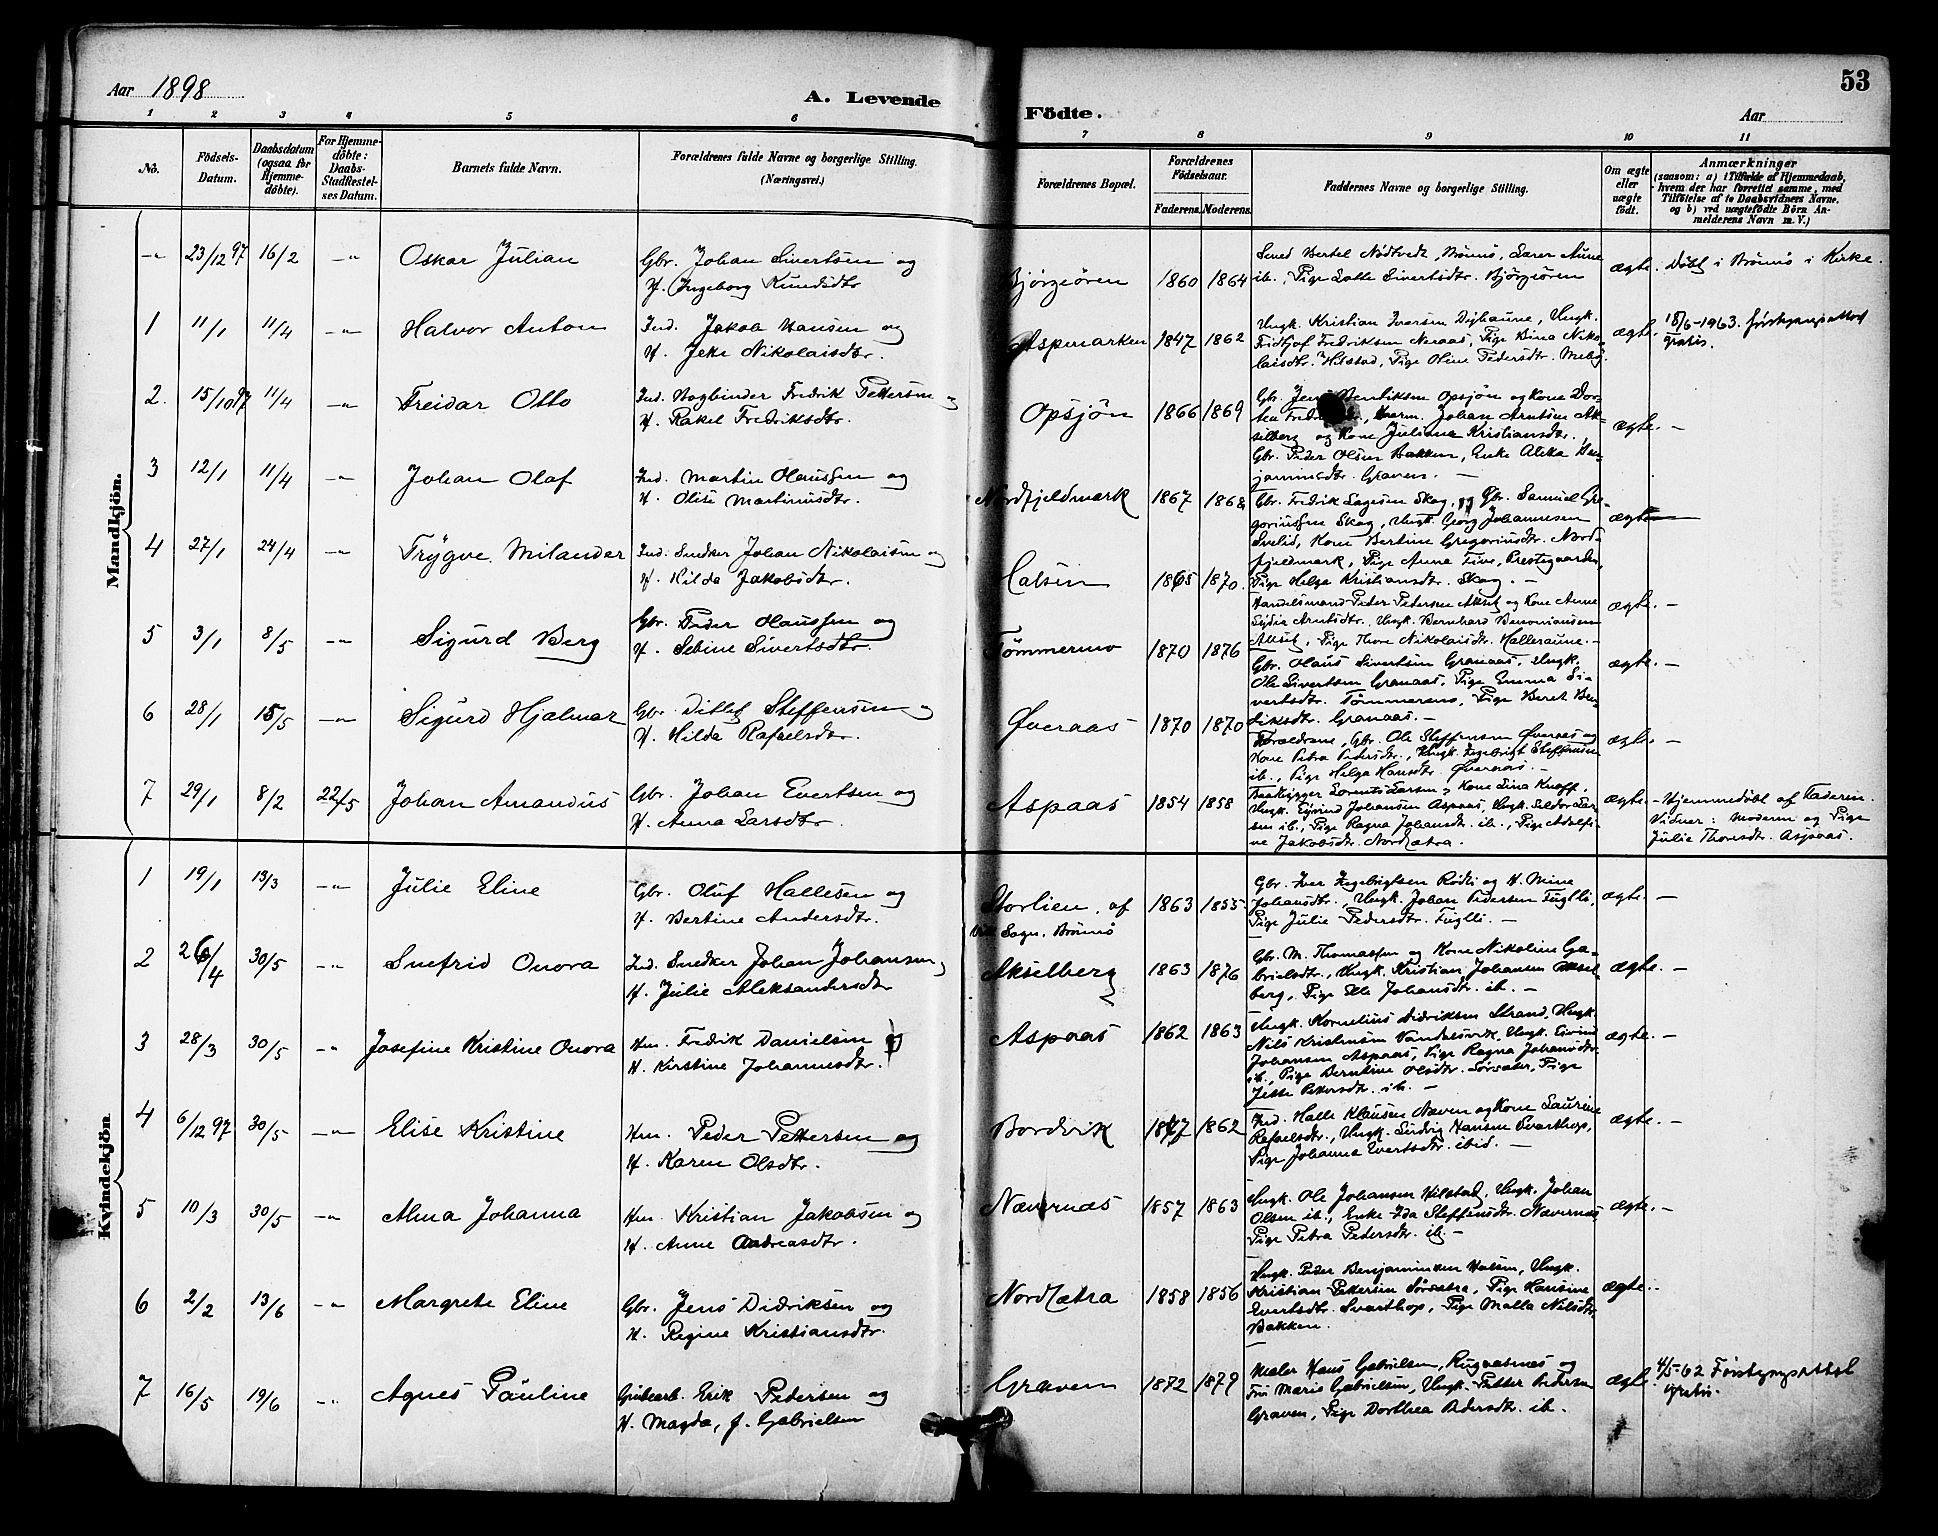 53
Aar 1898
A. Levende Födte.
Aar
1 2 3 4 5 6 7 8 9 10 11
No.
Födsels-
Datum.
Daabsdatum
(ogsaa for
Hjemme-
döbte).
For Hjemme-
döbte:
Daabs-
Stadfestel-
ses Datum.
Barnets fulde Navn.
Forældrenes fulde Navne og borgerlige Stilling.
(Næringsvei.)
Forældrenes Bopæl.
Forældrenes
Födselsaar.
Faderens. Moderens.
Faddernes Navne og borgerlige Stilling.
Om ægte
eller
uægte
födt.
Anmærkninger
(saasom: a) i Tilfælde af Hjemmedaab,
hvem der har forrettet samme, med
Tilföielse af to Daabsvidners Navne,
og b) ved uægtefödte Börn An-
melderens Navn m. V.)
Mandkjön.
-"- 23/12 97 16/2 -"- Oskar Julian
Gbr. Johan Sivertsen og
H. Ingeborg Knudsdtr
Bjørgøren 1860 1864
Smed Bertel Nødtvedt, Brønø, Larer Aune
ib., Pige Lotte Sivertsdtr. Bjørgøren
ægte. Døbt i Brønø i Kirke.
1 11/1 11/4 -"- Halvor Anton
Ind. Jakob Hansen og
H. Jeke Nikolaisdtr.
Aspmarken 1847 1862
Ungk. Kristian Iversen Dyhaune, Ungk.
Fridtjof Fredriksen Næraas, Pige Bina Niko-
laisdtr. Hilstad, Pige Oline Pedersdtr. Meby.
ægte. 18/6-1963. førstegangsattest
gratis.
2. 15/10 97 11/4 -"- Freidar Otto
Ind. Bogbinder Fredrik Pettersen og
H. Rakel Fredriksdtr.
Opsjøn 1866 1869
Gbr. Jens Henriksen Opsjøn og Kone Dor-
tea, Kvarm. Johan Arntsen Ak-
selberg og Kone Juliane Kristiansdtr.,
Gbr. Peder Olsen Bakken, Enke Aleka Ben-
jaminsdtr. Graven. —
ægte. —
3 12/1 11/4 -"- Johan Olaf
Ind. Martin Olaussen og
H. Olise Martinusdtr.
Nordfjeldmark 1867 1868
Gbr. Fredrik Lagesen Skog, og Gbr. Samuel Gre-
goriussen Skog, Ungk. Georg Johannesen
Svelid, Kone Bertine Gregoriusdtr. Nord-
fjeldmark, Pige Anna Five, Prestegaarden,
Pige Helga Kristiansdtr. Skog. —
ægte
4 27/1 24/4 -"- Trygve Milander
Ind. Snedker Johan Nikolaisen og
H. Hilda Jakobsdtr.
1865 1870.
Handelsmand Peder Petersen Akset og Kone Anne
Arntsdtr. Ungk. Bernhard Benoniansen
Akset, Pige Thone Nikolaisdtr. Halleraune. —
ægte. —
5 3/1 8/5 -"- Sigurd Berg
Gbr. Peder Olaussen og
H. Sebine Sivertsdtr.
Tømmermo 1870 1876
Gbr. Olaus Sivertsen Granaas, Ungk.
Ole Sivertsen Granaas, Pige Emma Si-
vertsdtr. Tømmermo, Pige Beret Ben-
diksdtr. Granaas. —
ægte. —
6 28/1 15/5 -"- Sigurd Hjalmar
Gbr. Ditlef Steffensen og
H. Hilda Rafaelsdtr.
Øveraas 1870 1870
Forældrene, Gbr. Ole Steffensen Øveraas og
Kone Petra Pedersdtr., Ungk. Ingebrigt Steffensen
ib., Pige Helga Hansdtr. Øveraas. —
ægte. —
7 29/1 8/2 22/5 Johan Amandus
Gbr. Johan Evertsen og
H. Anna Larsdtr.
Aspaas 1854 1858
Baadbygger Lorents Larsen, Kone Lina Knoff,
Ungk. Eyvind Johansen Aspaas, Ungk. Seldor Lar-
sen ib., Pige Ragna Johansdtr. ib., Pige Adolfi-
ne Jakobsdtr. Nordsætra.
ægte. — Hjemmedøbt af Faderen.
Vidner: Moderen og Pige
Julie Thorsdtr. Aspaas.
Kvindekjön
1 19/1 13/3 -"- Julie Eline
Gbr. Oluf Hallesen og
H. Bertine Andersdtr.
Storlien, af
Sogn. Brønø
1863 1855
Gbr. Iver Ingebrigtsen Rødli og H. Mine
Johansdtr., Ungk. Johan Pedersen Fuglli,
Pige Julie Pedersdtr. Fuglli. —
ægte. —
2 26/4 30/5 -"- Snefrid Onora
Ind. Snedker Johan Johansen og
H. Julie Aleksandersdtr
Akselberg 1863 1876
Gbr. M. Thomassen og Kone Nikoline Ga-
brielsdtr., Ungk. Kristian Johansen Aksel-
berg, Pige Elle Johansdtr. ib. —
ægte. —
3 28/3 30/5 -"- Josefine Kristine Onora
Hm. Fredrik Danielsen og
H. Kirstine Johannesdtr.
Aspaas 1862 1863
Ungk. Kornelius Didriksen Strand, Ungk.
Nils Kristensen Vandalsvik, Ungk. Eivind
Johansen Aspaas, Pige Ragna Johansdtr.
ib., Pige Berntine Olsdtr. Sørsæter, Pige
Jette Petersdtr. ib. —
ægte. —
4 6/12 97 30/5 -"- Elise Kristine
Hm. Peder Pettersen og
H. Karen Olsdtr.
Bordvik 1847 1862
Ind. Halle Klausen Naven og Kone Laurine
Rafaelsdtr., Ungk. Ludvig Hansen Svarthop,
Pige Johanna Evertsdtr. ibid. —
ægte. —
5 10/3 30/5 -"- Alma Johanna
Hm. Kristian Jakobsen og
H. Anne Andreasdtr.
Nævernæs 1857 1863
Ungk. Ole Johansen Hilstad, Ungk. Johan
Olsen ib., Enke Ida Steffensdtr. Nævernæs
Pige Petra Pedersdtr. ib. —
ægte. —
6 2/2 13/6 -"- Margrete Eline
Gbr. Jens Didriksen og
H. Regine Kristiansdtr.
Nordsætra 1858 1856
Ungk. Peder Benjaminsen Halsen, Ungk.
Kristian Petersen Sørsætra, Pige Hansine
Evertsdtr. Svarthop, Pige Malla Nilsdtr.
Bakken.
ægte. —
7 16/5 19/6 -"- Agnes Pauline
Grubearb. Erik Pedersen og
H. Magda, f. Gabrielsen
Graven 1872 1879
Maler Hans Gabrielsen, Rugaasnes og
Fru Marie Gabrielsen, Ungk. Petter Pedersen
Graven, Pige Dorthea Pedersdtr. ib.
ægte. 4/5-62 Førstegangsattest
gratis.